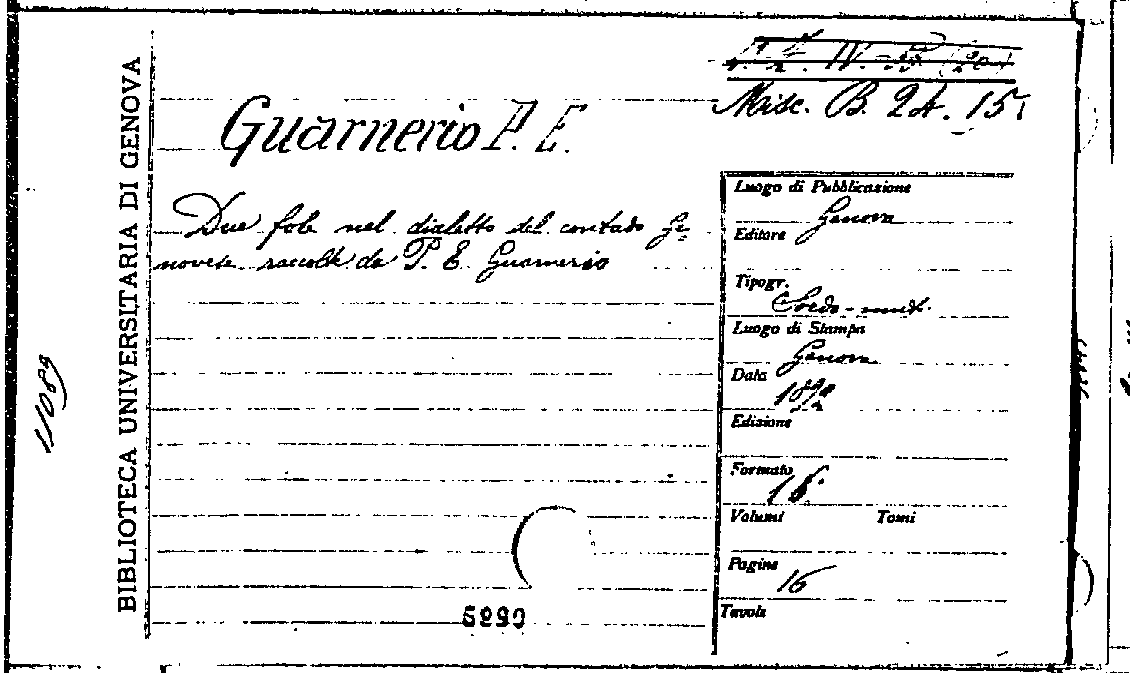 Misc. B. 24. 15
Guarnerio P. E.
Due fole nel dialetto del contado Ge=
novese raccolte da P. E. Guarnerio
Luogo di Pubblicazione
Genova
Editore
Tipogr.
Sordo-muti
Luogo di Stampa
Genova
Data
1892
Edizione
Formato
16°
Volumi Tomi
Pagine
16
Tavole
BIBLIOTECA UNIVERSITARIA DI GENOVA
11089